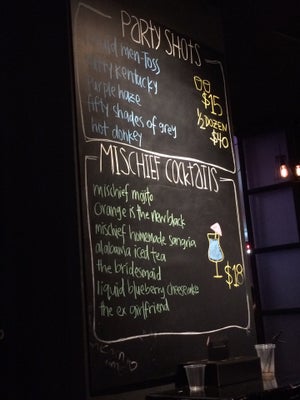 PARTY SHOTS
men-Toss
kentucky
Purple haze
fifty shades of grey
hot donkey
$15
1/2 DOZEN
$40
MISCHIEF COCKTAILS
mischief mojito
Orange is the new black
mischief homemade sangria
alabama iced tea
the bridesmaid
liquid blueberry cheesecake
the ex girlfriend
$18